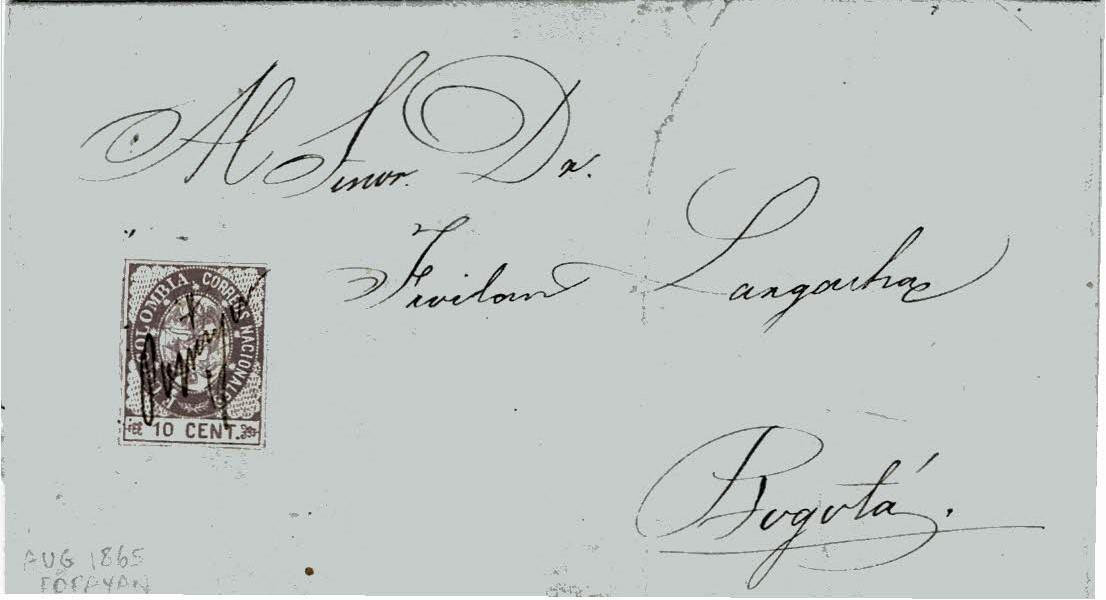 Al Señor Dr.
Froilan Largacha
Bogotá.
E.U. COLOMBIA. CORREOS NACIONALES
Popayan
10 CENT.
AUG 1865
POPAYAN